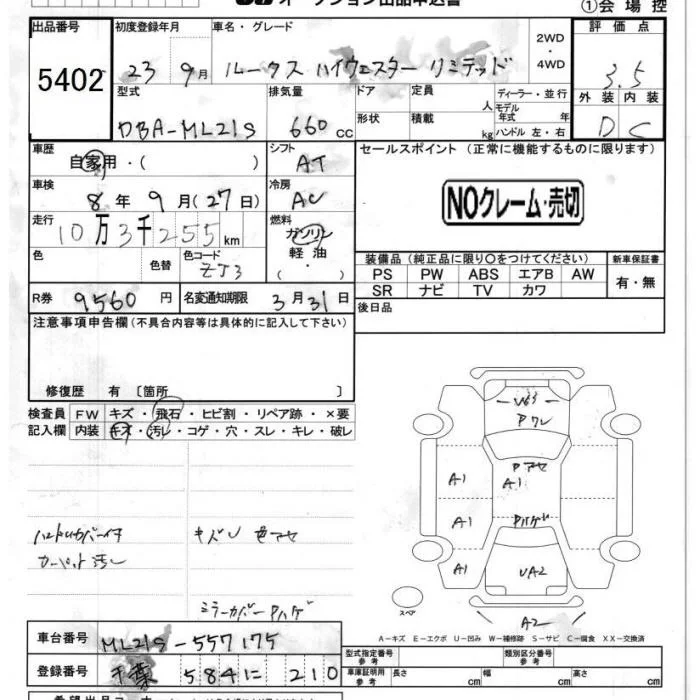 ①会場控
出品番号
5402
初度登録年月
23 9月
車名・グレード
ルークス ハイウェスター リミテッド
2WD
・
4WD
評価点
3.5
外装 内装
D C
型式
DBA-ML21S
排気量
660 cc
ドア
形状
定員
人
積載
kg
ディーラー・並行
モデル
年式 年
ハンドル 左・右
車歴
自家用・( )
シフト
AT
車検
8年 9月(27日)
冷房
AC
走行
10万3千255km
燃料
ガソリン
軽油
( ・ )
色
色替
色コード
ZJ3
R券
9560円
名変通知期限
3月31日
セールスポイント(正常に機能するものに限ります)
NOクレーム・売切
装備品(純正品に限り〇をつけてください)
新車保証書
PS PW ABS エアB AW
SR ナビ TV カワ
有・無
後日品
注意事項申告欄(不具合内容等は具体的に記入して下さい)
修復歴 有〔箇所 〕
検査員
記入欄
FW キズ・飛石・ヒビ割・リペア跡・×要
内装 キズ・汚レ・コゲ・穴・スレ・キレ・破レ
カーペット汚レ
キズU 色アセ
ミラーカバーPハゲ
Pワレ
Pアセ
A1
A1
A1
Pハゲ
A1
UA2
A2
スペア
A−キズ E−エクボ U−凹み W−補修跡 S−サビ C−腐食 XX−交換済
車台番号
ML21S-557175
登録番号
千葉 584に 210
型式指定番号
参考
類別区分番号
参考
車庫証明用
参考
長さ cm
幅 cm
高さ cm